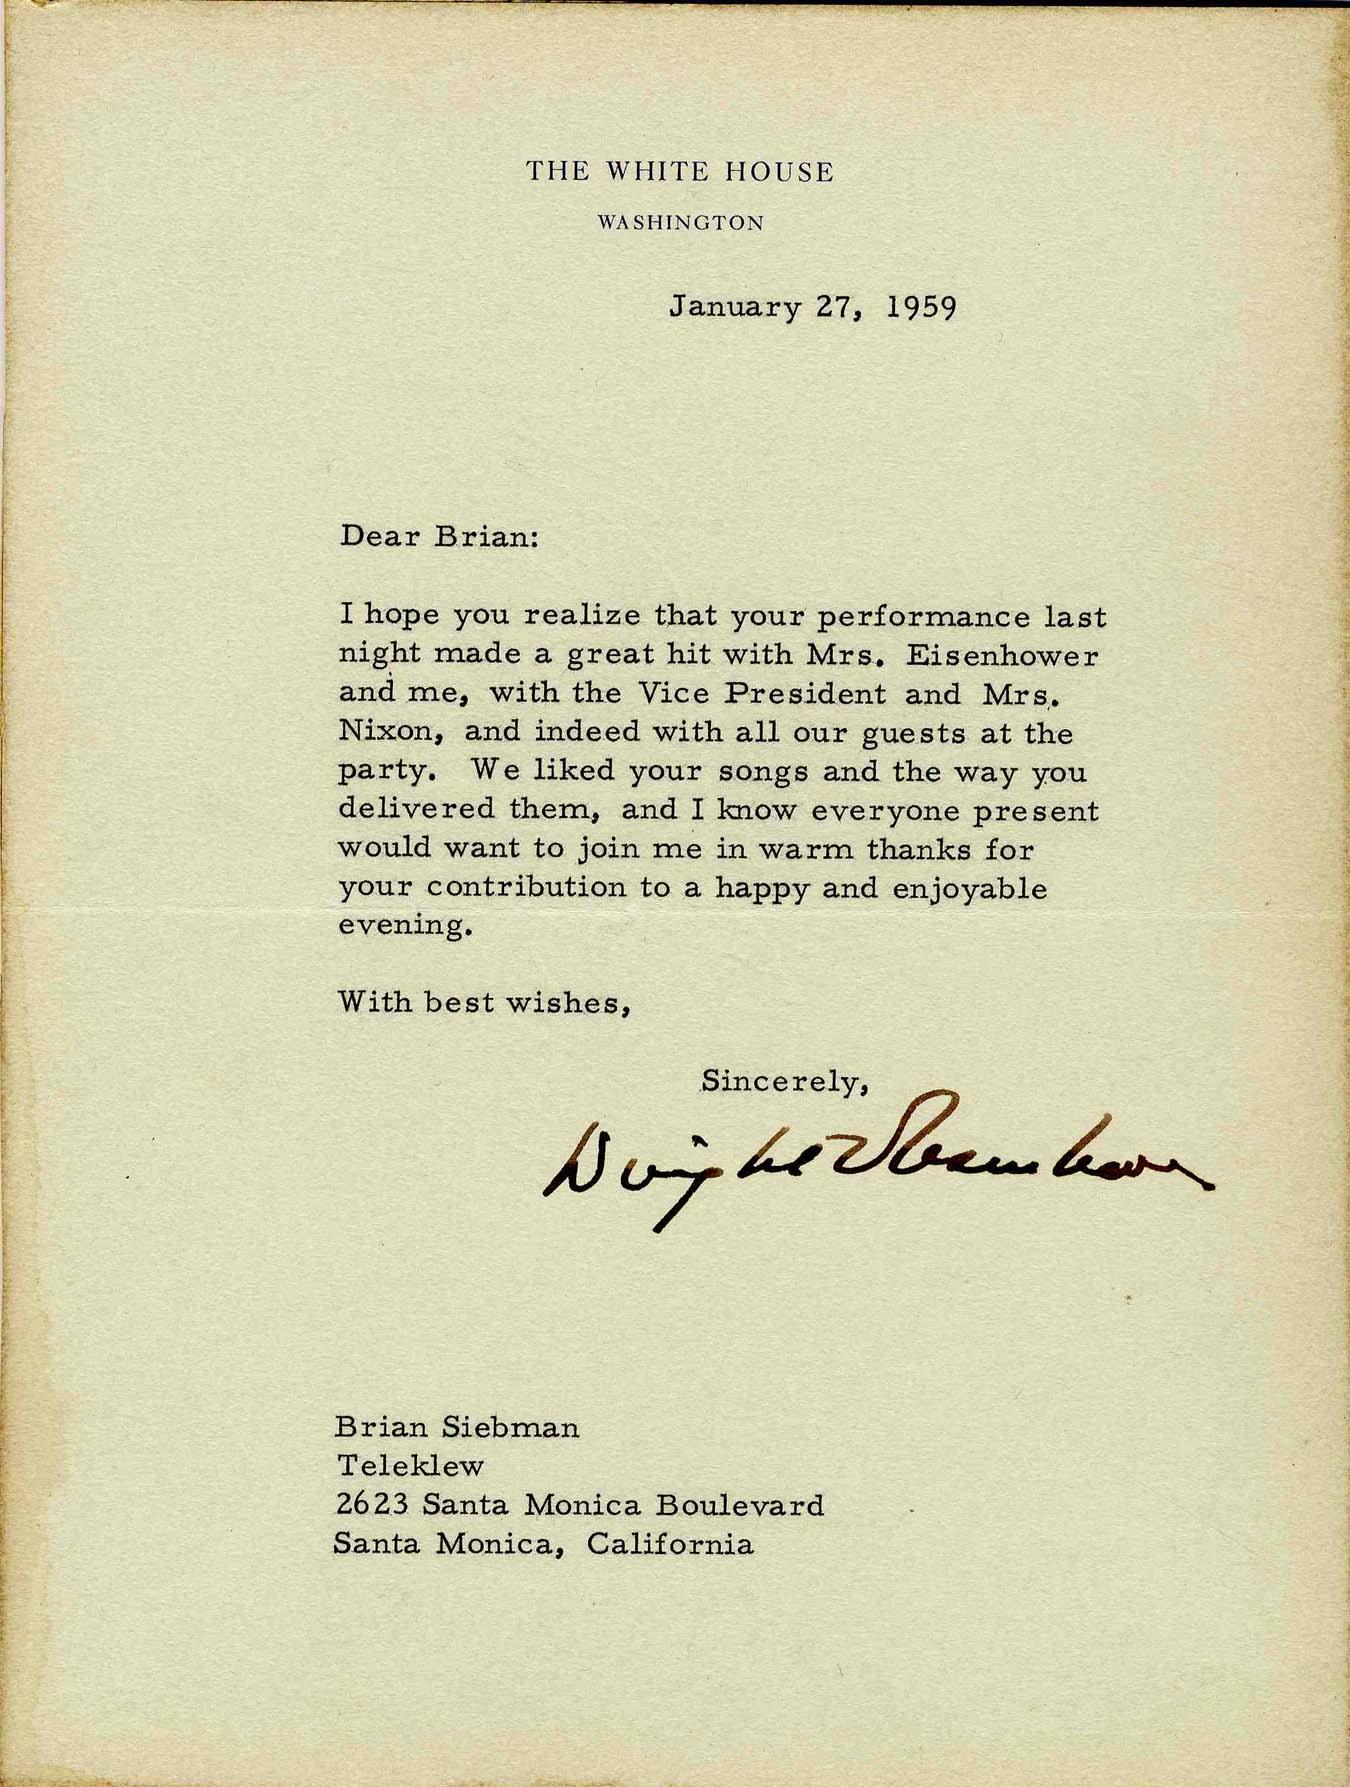 THE WHITE HOUSE
WASHINGTON
January 27, 1959
Dear Brian:
I hope you realize that your performance last
night made a great hit with Mrs. Eisenhower
and me, with the Vice President and Mrs.
Nixon, and indeed with all our guests at the
party. We liked your songs and the way you
delivered them, and I know everyone present
would want to join me in warm thanks for
your contribution to a happy and enjoyable
evening.
With best wishes,
Sincerely,
Dwight D Eisenhower
Brian Siebman
Teleklew
2623 Santa Monica Boulevard
Santa Monica, California